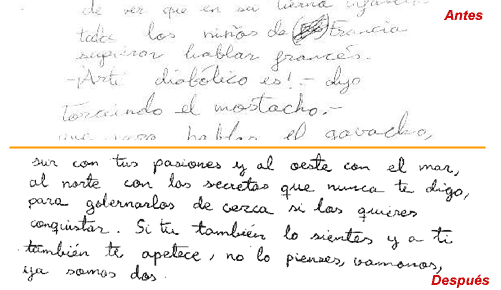 Antes
de ver que en su tierna infancia
todos los niños de Francia
supieran hablar francés.
-¡Arte diabólico es!- dijo
torciendo el mostacho.-
que para hablar el gavacho,
sur con tus pasiones y al oeste con el mar,
al norte con los secretos que nunca te digo,
para gobernarlos de cerca si los quieres
conquistar. Si tu también lo sientes y a ti
también te apetece, no lo pienses, vamonos,
ya somos dos.
Después